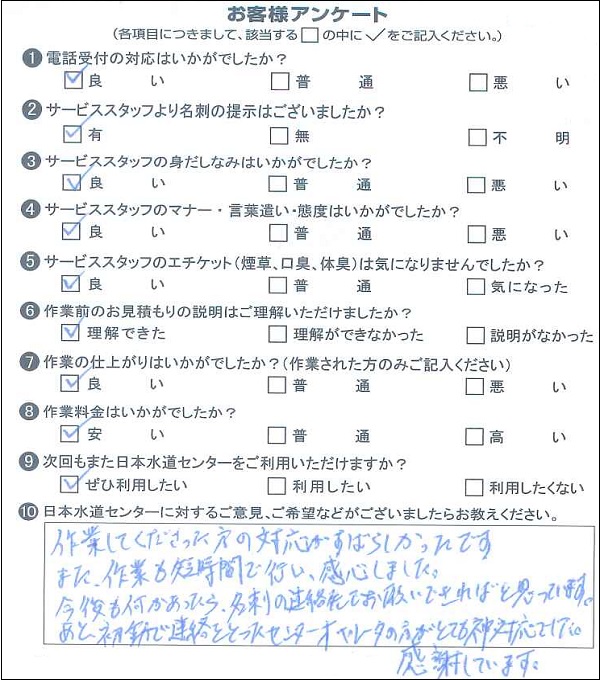 お客様アンケート
(各項目につきまして、該当する□の中に✓をご記入ください。)
❶ 電話受付の対応はいかがでしたか?
☑ 良い □ 普通 □ 悪い
❷ サービススタッフより名刺の提示はございましたか?
☑ 有 □ 無 □ 不明
❸ サービススタッフの身だしなみはいかがでしたか?
☑ 良い □ 普通 □ 悪い
❹ サービススタッフのマナー・言葉遣い・態度はいかがでしたか?
☑ 良い □ 普通 □ 悪い
❺ サービススタッフのエチケット(煙草、口臭、体臭)は気になりませんでしたか?
☑ 良い □ 普通 □ 気になった
❻ 作業前のお見積もりの説明はご理解いただけましたか?
☑ 理解できた □ 理解ができなかった □ 説明がなかった
❼ 作業の仕上がりはいかがでしたか?(作業された方のみご記入ください)
☑ 良い □ 普通 □ 悪い
❽ 作業料金はいかがでしたか?
☑ 安い □ 普通 □ 高い
❾ 次回もまた日本水道センターをご利用いただけますか?
☑ ぜひ利用したい □ 利用したい □ 利用したくない
❿ 日本水道センターに対するご意見、ご希望などがございましたらお教えください。
作業してくださった方の対応がすばらしかったです
また、作業も短時間で行い、感心しました。
今後も何かあったら、名刺の連絡先でお願いできればと思っています。
あと、初動で連絡をとったセンターオペレータの方がとても神対応でした。
感謝しています。